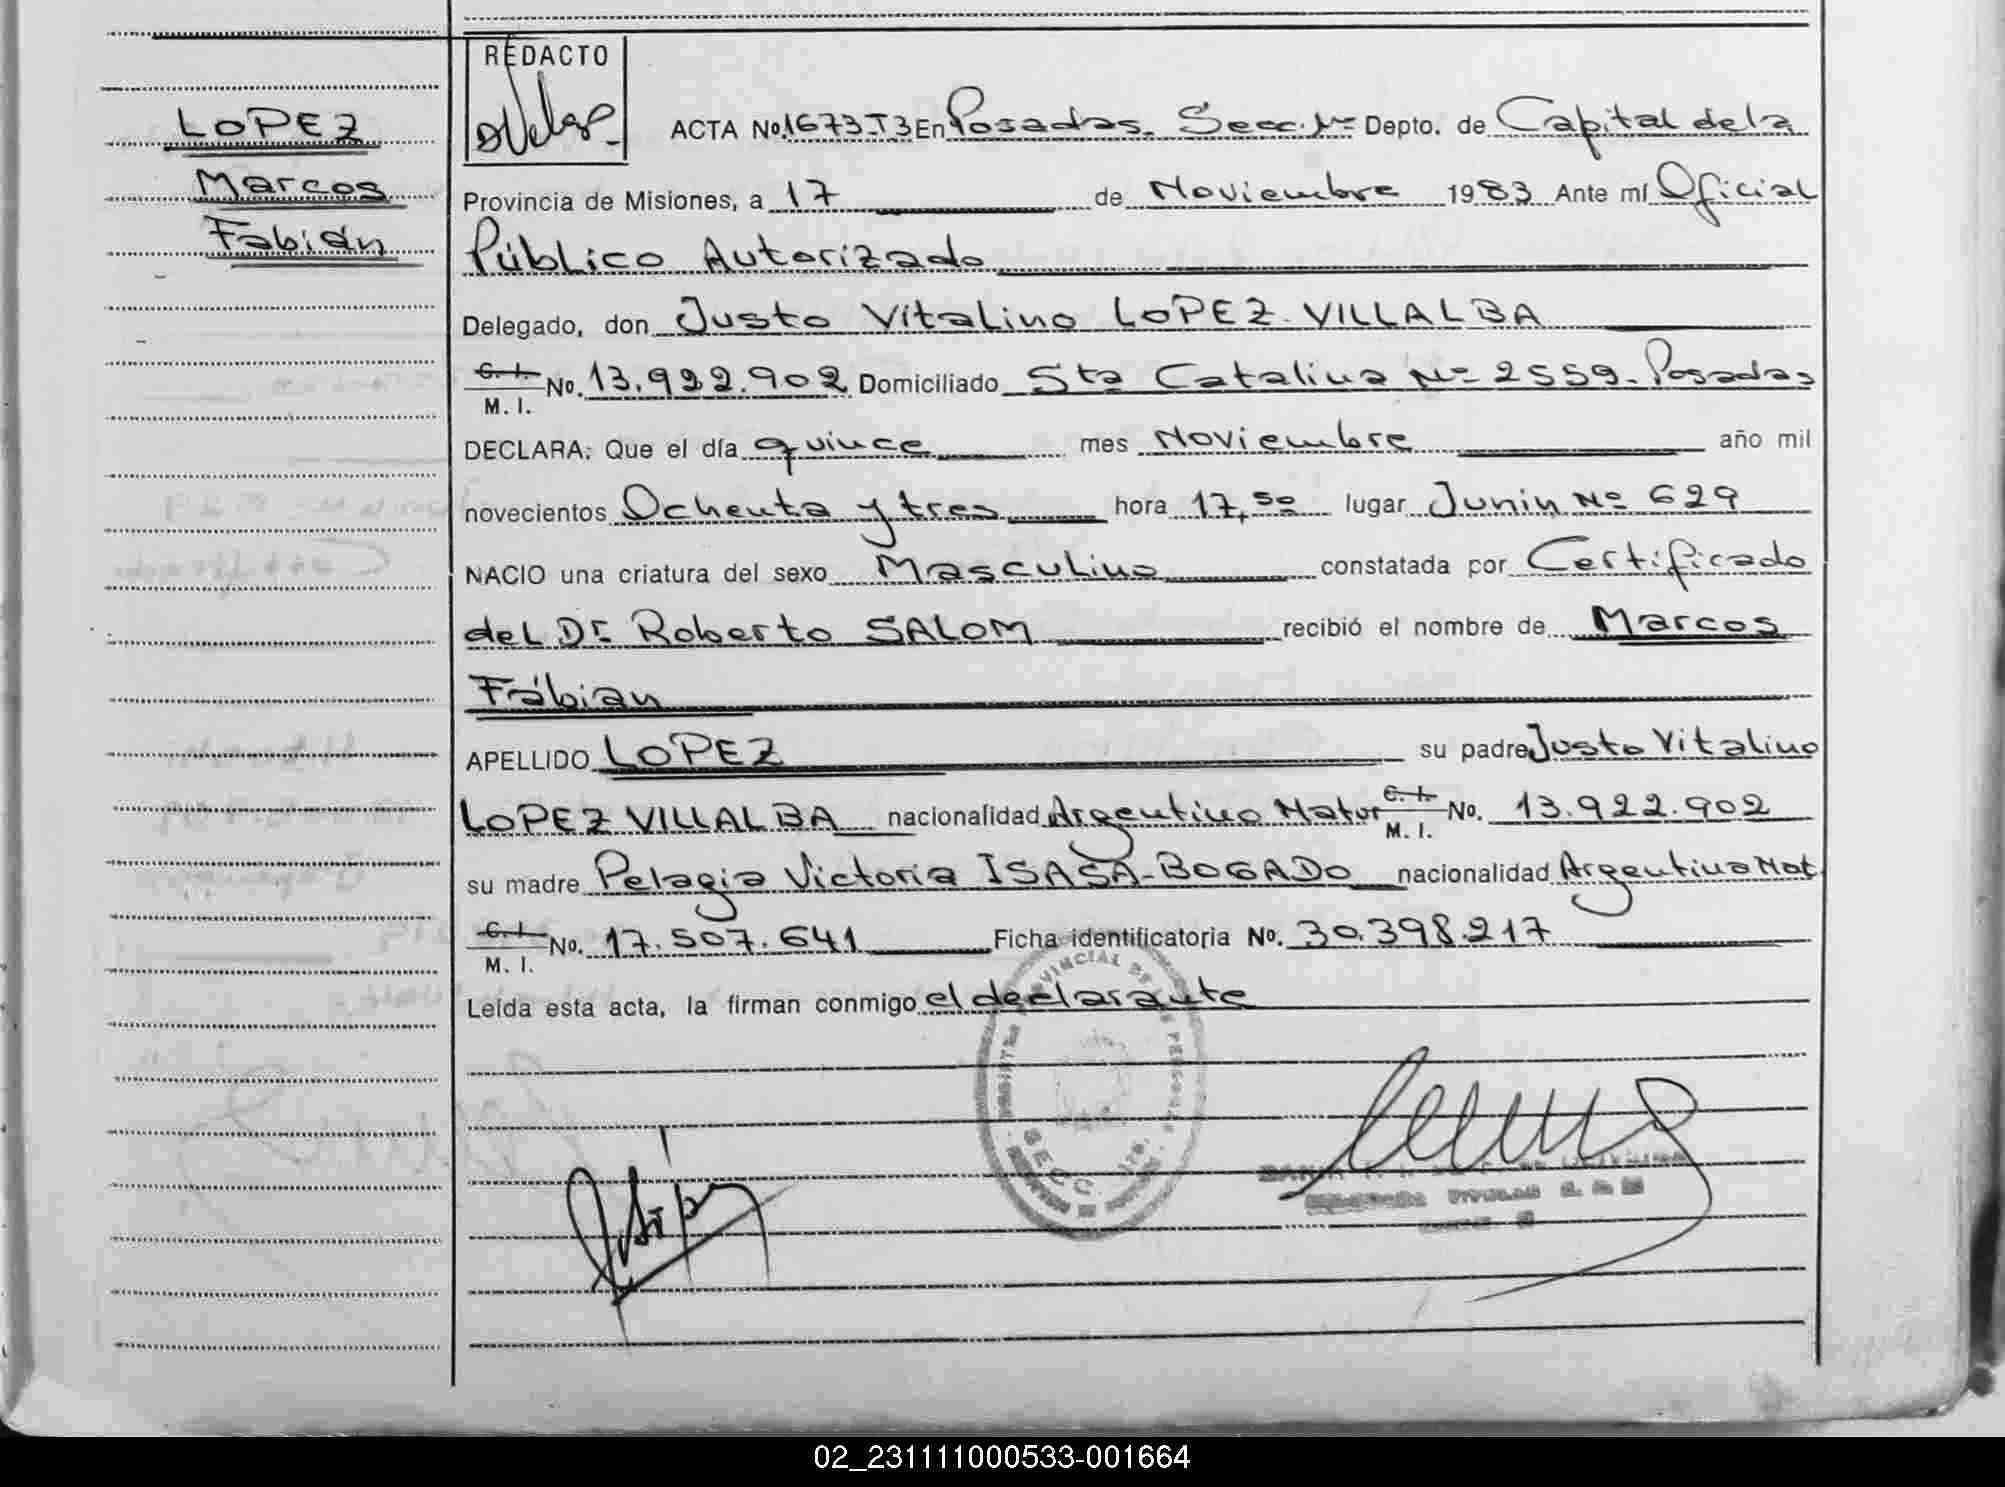 LOPEZ
Marcos
Fabián
REDACTO
ACTA No. 1673-T3 En Posadas. Secc. 1ª Depto. de Capital de la
Provincia de Misiones, a 17 de Noviembre 1983 Ante mí Oficial
Público Autorizado
Delegado, don Justo Vitalino LOPEZ VILLALBA
C. I. M. I. No. 13.922.902 Domiciliado Sta Catalina Nº 2559. Posadas
DECLARA: Que el día quince mes Noviembre año mil
novecientos Ochenta y tres hora 17,50 lugar Junin Nº 629
NACIO una criatura del sexo Masculino constatada por Certificado
del Dr. Roberto SALOM recibió el nombre de Marcos
Fábian
APELLIDO LOPEZ su padre Justo Vitalino
LOPEZ VILLALBA nacionalidad Argentino Natur C. I. M. I. No. 13.922.902
su madre Pelagia Victoria ISASA-BOGADO nacionalidad Argentina Nat.
C. I. M. I. No. 17.507.641 Ficha identificatoria No. 30.398.217
Leída esta acta, la firman conmigo el declarante
PROVINCIAL DE LAS PERSONAS
SECC. 1ra.
02_231111000533-001664